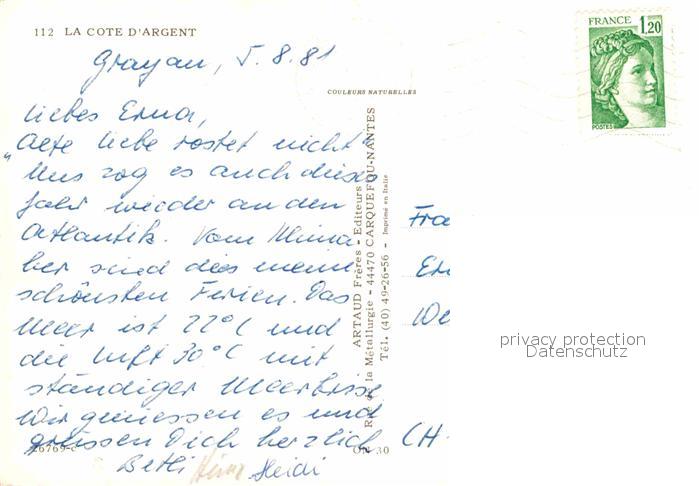 112 LA COTE D'ARGENT
FRANCE
1,20
POSTES
COULEURS NATURELLES
Grayan, 5.8.81
Liebes Erna,
„Alte Liebe rostet nicht“
Uns zog es auch dieses
Jahr wieder an den
Atlantik. Vom Klima
her sind dies meine
schönsten Ferien. Das
Meer ist 22°C und
die Luft 30°C mit
ständiger Meerbrise
Wir geniessen es und
grüssen Dich herzlich
Bethi Heidi
ARTAUD Frères - Editeurs
de la Métallurgie - 44470 CARQUEFOU-NANTES
Tél. (40) 49-26-56 - Imprimé en Italie
30
Fra
We
CH
privacy protection
Datenschutz